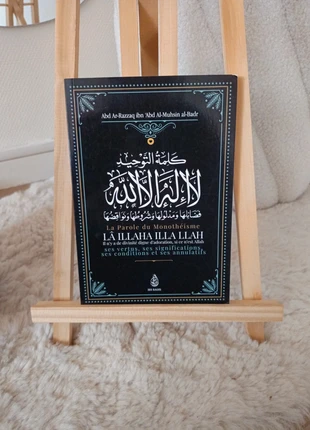 Abd Ar-Razzaq ibn 'Abd Al-Muhsin al-Badr
كلمة التوحيد
لا إله إلا الله
فضائلها ومدلولها وشروطها ونواقضها
La Parole du Monothéisme
LÂ ILLAHA ILLA LLAH
Il n'y a de divinité digne d'adoration, si ce n'est Allah
ses vertus, ses significations,
ses conditions et ses annulatifs